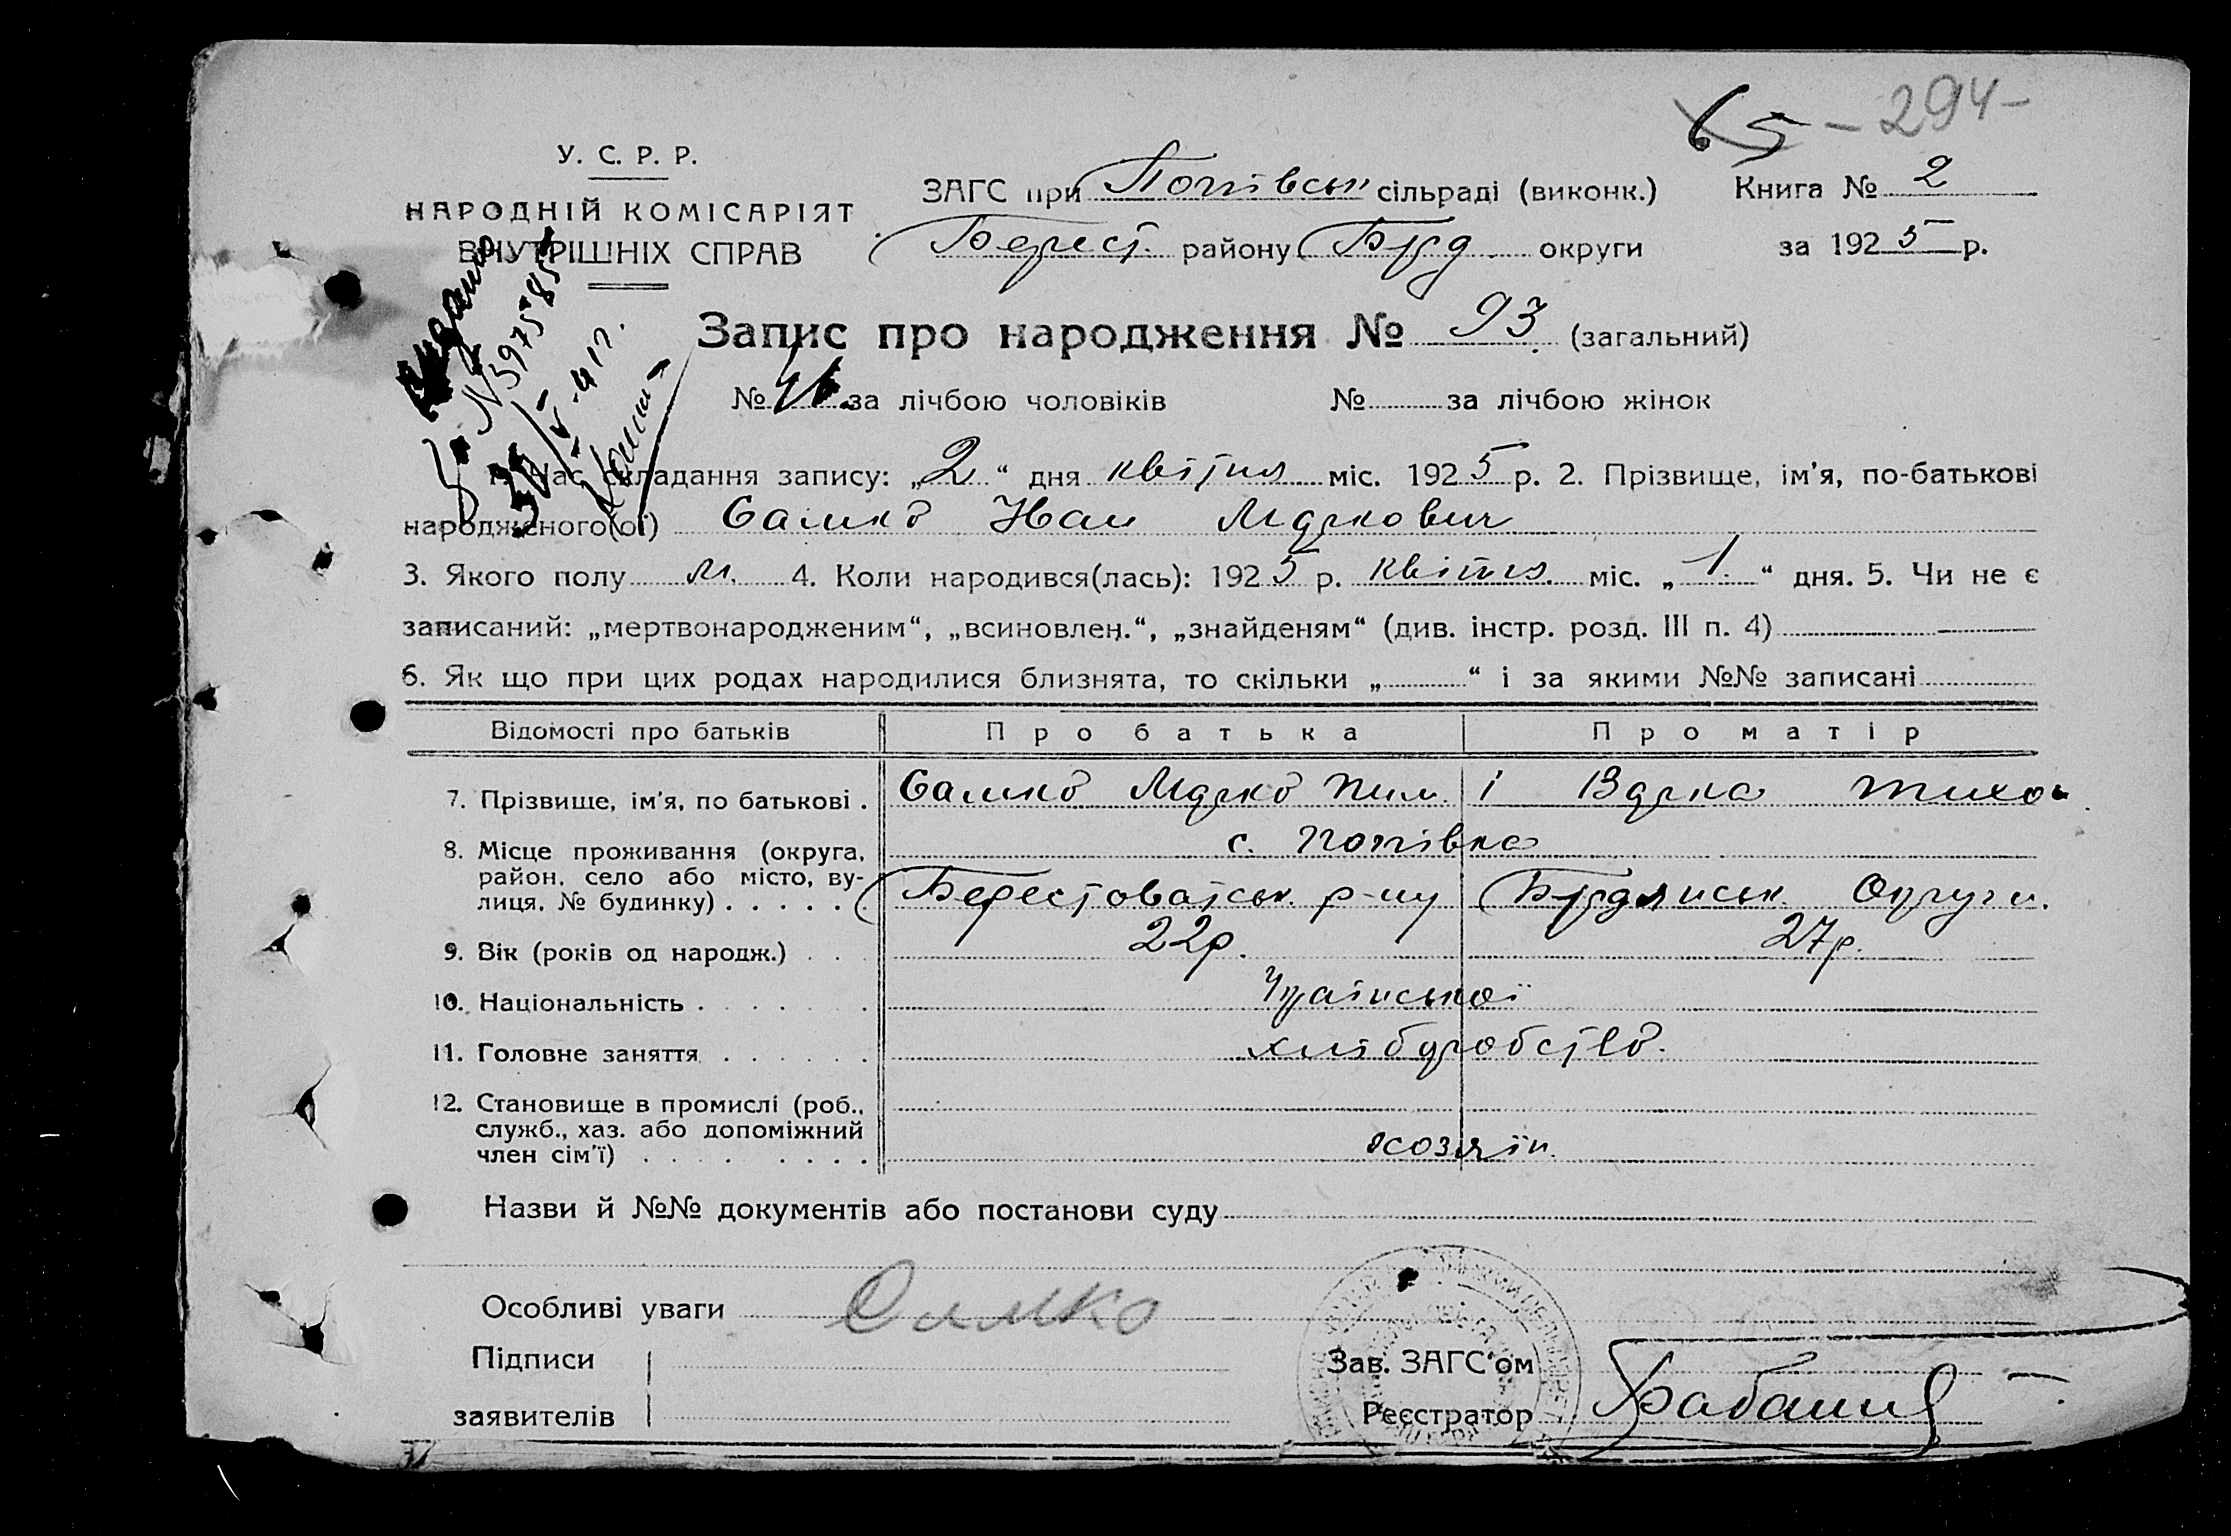 65 – 294 –
У. С. Р. Р.
НАРОДНІЙ КОМІСАРІЯТ
ВНУТРІШНІХ СПРАВ
ЗАГС при Попівськ сільраді (виконк.) Книга № 2
Берест. району Брд. округи за 1925 р.
Запис про народження № 93. (загальний)
№ за лічбою чоловіків № за лічбою жінок
1. Час складання запису: „2“ дня квітня міс. 1925 р. 2. Прізвище, ім'я, по-батькові
народженого(ої) Самко Иван Маркович
3. Якого полу м. 4. Коли народився(лась): 1925 р. квітня міс. „1.“ дня. 5. Чи не є
записаний: „мертвонародженим“, „всиновлен.“, „знайденям“ (див. інстр. розд. III п. 4)
6. Як що при цих родах народилися близнята, то скільки „ “ і за якими №№ записані
Відомості про батьків Про батька Про матір
7. Прізвище, ім'я, по батькові . Самко Марко Пим. і Варка Тихо
8. Місце проживання (округа, с. Попівка
район, село або місто, ву-
лиця, № будинку) . . . . . Берестоватськ. р-ну Брдянськ. Округи.
9. Вік (років од народж.) . . . 22р. 27р.
10. Національність . . . . . . Української
11. Головне заняття . . . . . . хліборобство.
12. Становище в промислі (роб.,
служб., хаз. або допоміжний
член сім'ї) . . . . . . . . хозяїн.
Назви й №№ документів або постанови суду
Особливі уваги Самко
Підписи Зав. ЗАГС'ом
заявителів Реєстратор